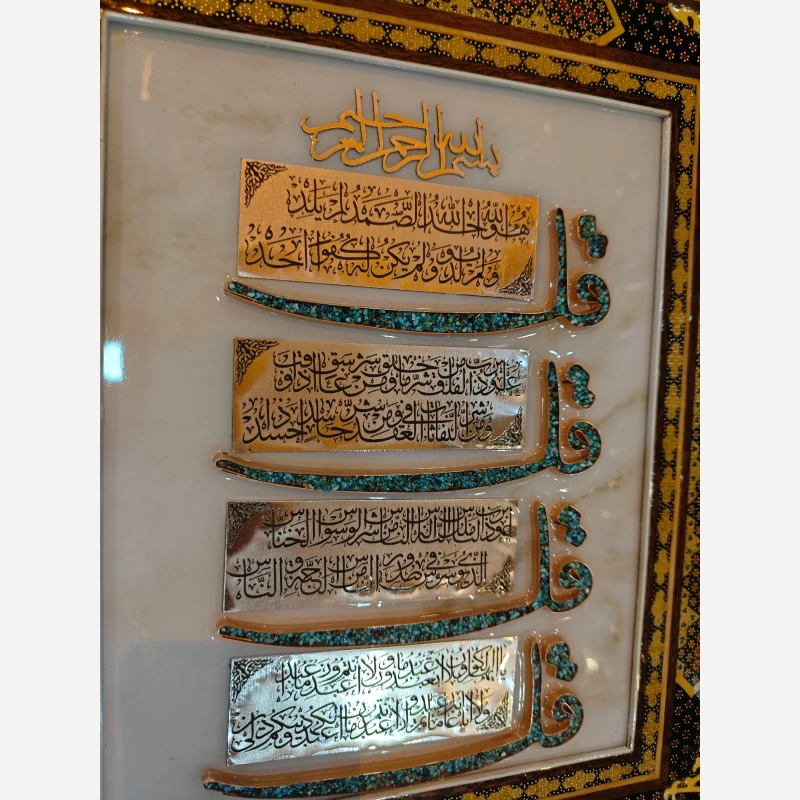 بسم الله الرحمن الرحيم
قل
هُوَ اللهُ اَحَدٌ اَللهُ الصَّمَدُ لَمْ يَلِدْ
وَلَمْ يُولَدْ وَلَمْ يَكُنْ لَهُ كُفُوًا اَحَدٌ
قل
اعوذ برب الفلق من شر ما خلق ومن شر غاسق اذا وقب
ومن شر النفاثات في العقد ومن شر حاسد اذا حسد
قل
اعوذ برب الناس ملك الناس اله الناس من شر الوسواس الخناس
الذي يوسوس في صدور الناس من الجنة و الناس
قل
يا ايها الكافرون لا اعبد ما تعبدون ولا انتم عابدون ما اعبد
ولا انا عابد ما عبدتم ولا انتم عابدون ما اعبد لكم دينكم ولي دين